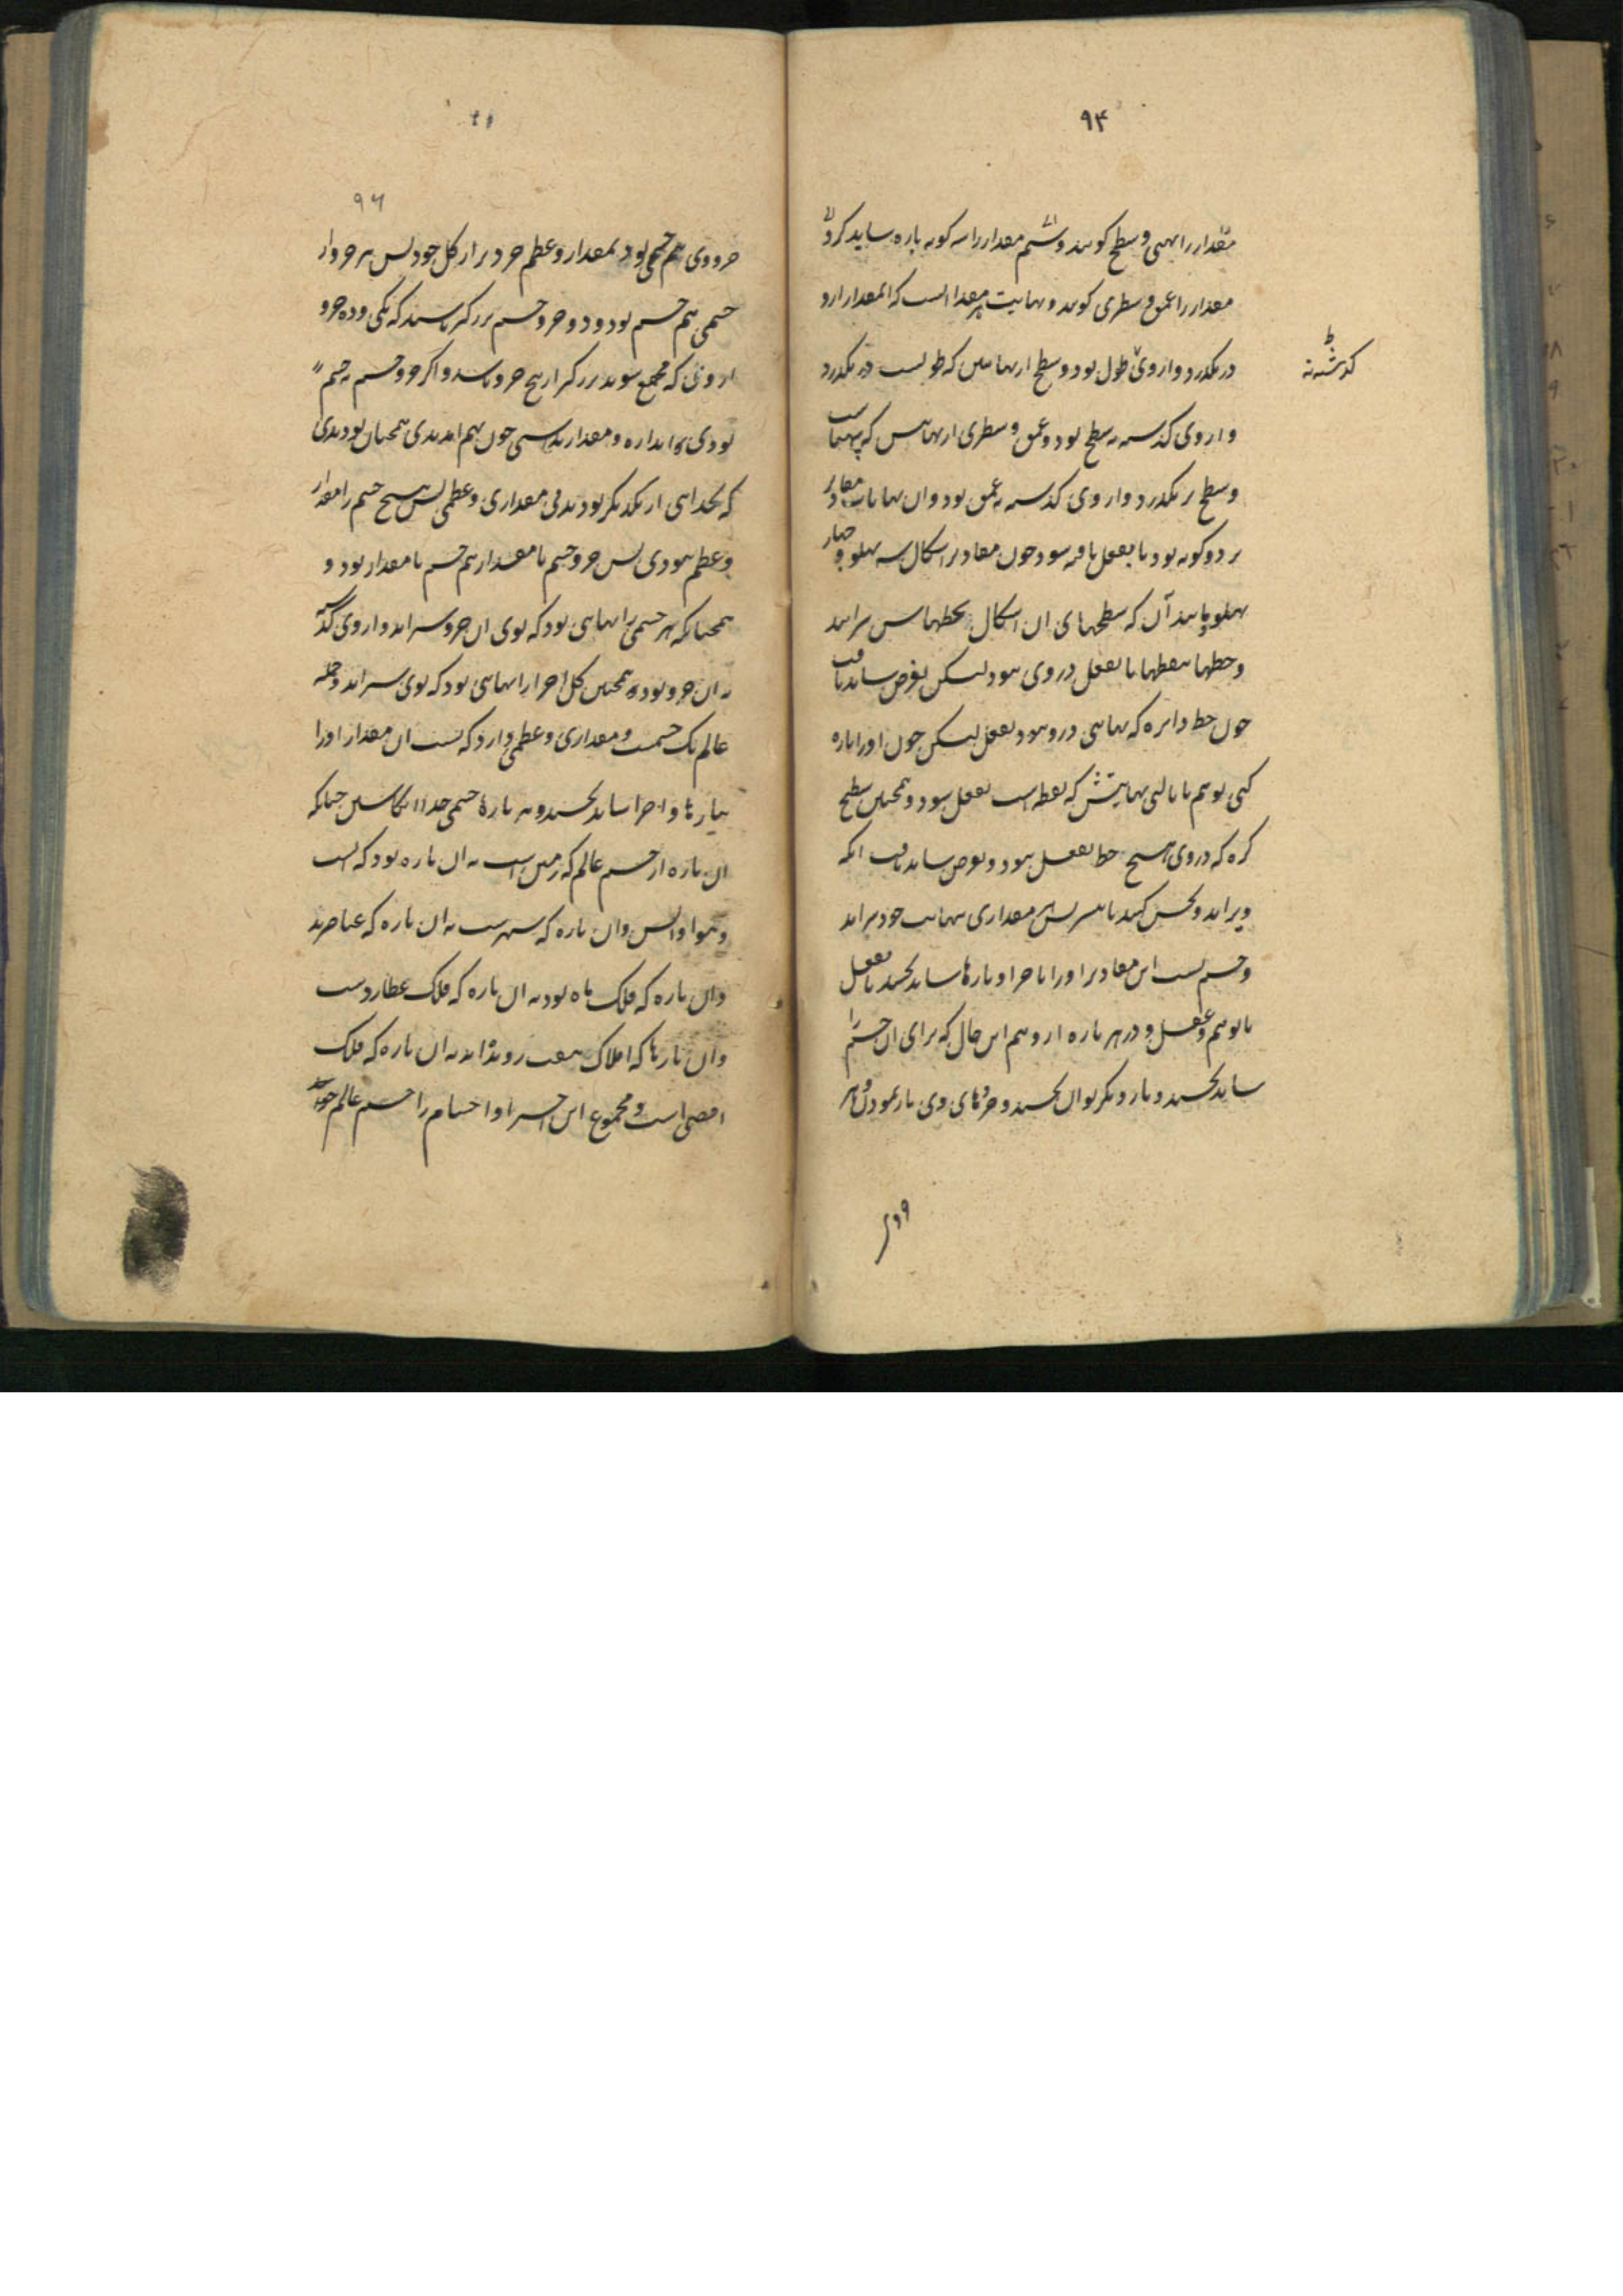 ۹۴
مقدار را پهنی و سطح کویند و ششم مقدار را سه کونه پاره شاید کرد و
مقدار را عمق و سطبری کویند و نهایت هر مقدار آنست که آن مقدار ازو
در نگذرد و از وی طول بود و سطح از نهایتش که طولست در نگذرد
کذشته نه
و از وی کذشته نه سطح بود و عمق و سطبری از نهایتش که پهناست
و سطح بر نگذرد و از وی کذشته نه عمق بود و آن نهایات مقادیر
بر دو کونه بود یا بفعل یافته شود چون مقادیر اشکال سه پهلو و چهار
پهلو و مانند آن که سطحهای آن اشکال بخطهاشان سرایند
و خطها بنقطها یا بفعل در وی نبود لیکن بفرض شاید یافت
چون خط دایره که نهایتی درو نبود بفعل لیکن چون او را پاره
کنی بوهم یا بآلتی نهایتش که نقطه است بفعل شود و همچنین سطح
کره که در وی هیچ خط بفعل نبود و بفرض شاید یافت آنکه
ویرا اند و بخش کنند تا هر مقداری بنهایت خود سراید
و جسم نیست این مقادیر او را باجزا و پارها شاید بخشید بفعل
یا بوهم و عقل و در هر پاره ازو هم این حال که برای آن جسم را
شاید بخشید و بار دیکر توان بخشید و جزوهای وی باز نمودن و هر
جزوی
۹۶
جزو وی هم جسمی بود بمقدار و عظم خردتر از کل خود پس هر جزو از
جسمی هم جسم بود و دو جزو جسم بزرکتر باشند که یکی و ده جزو
از وی که مجتمع شوند بزرکتر از پنج جزو باشد و اکر جزو جسم نه جسم
بودی و اندازه و مقدار نداشتی چون بهم آمدندی همچنان بودندی
که بجدایی از یکدیکر بودند بی مقداری و عظمی پس هیچ جسم را مقدار
و عظم نبودی پس جزو جسم با مقدار هم جسم با مقدار بود و
همچنانکه هر جسمی را نهایتی بود که بوی آن جزو سراید و از وی کذشته
نه آن جزو بود همچنین کل اجزا را نهایتی بود که بوی سراید و جمله
عالم یک جسمست و مقداری و عظمی دارد که نیست آن مقدار او را
بپارها و اجزا شاید بخشید و نه پارهٔ جسمی جداکانه چنانکه
آن پاره از جسم عالم که زمین است نه آن پاره بود که آب
و هوا و آتش و آن پاره که سپهرست نه آن پاره که عناصرند
و آن پاره که فلک ماه بود نه آن پاره که فلک عطاردست
و آن پارها که افلاک هفت روندهاند نه آن پاره که فلک
اقصی است و مجموع این اجزا و اجسام را جسم عالم خوانند